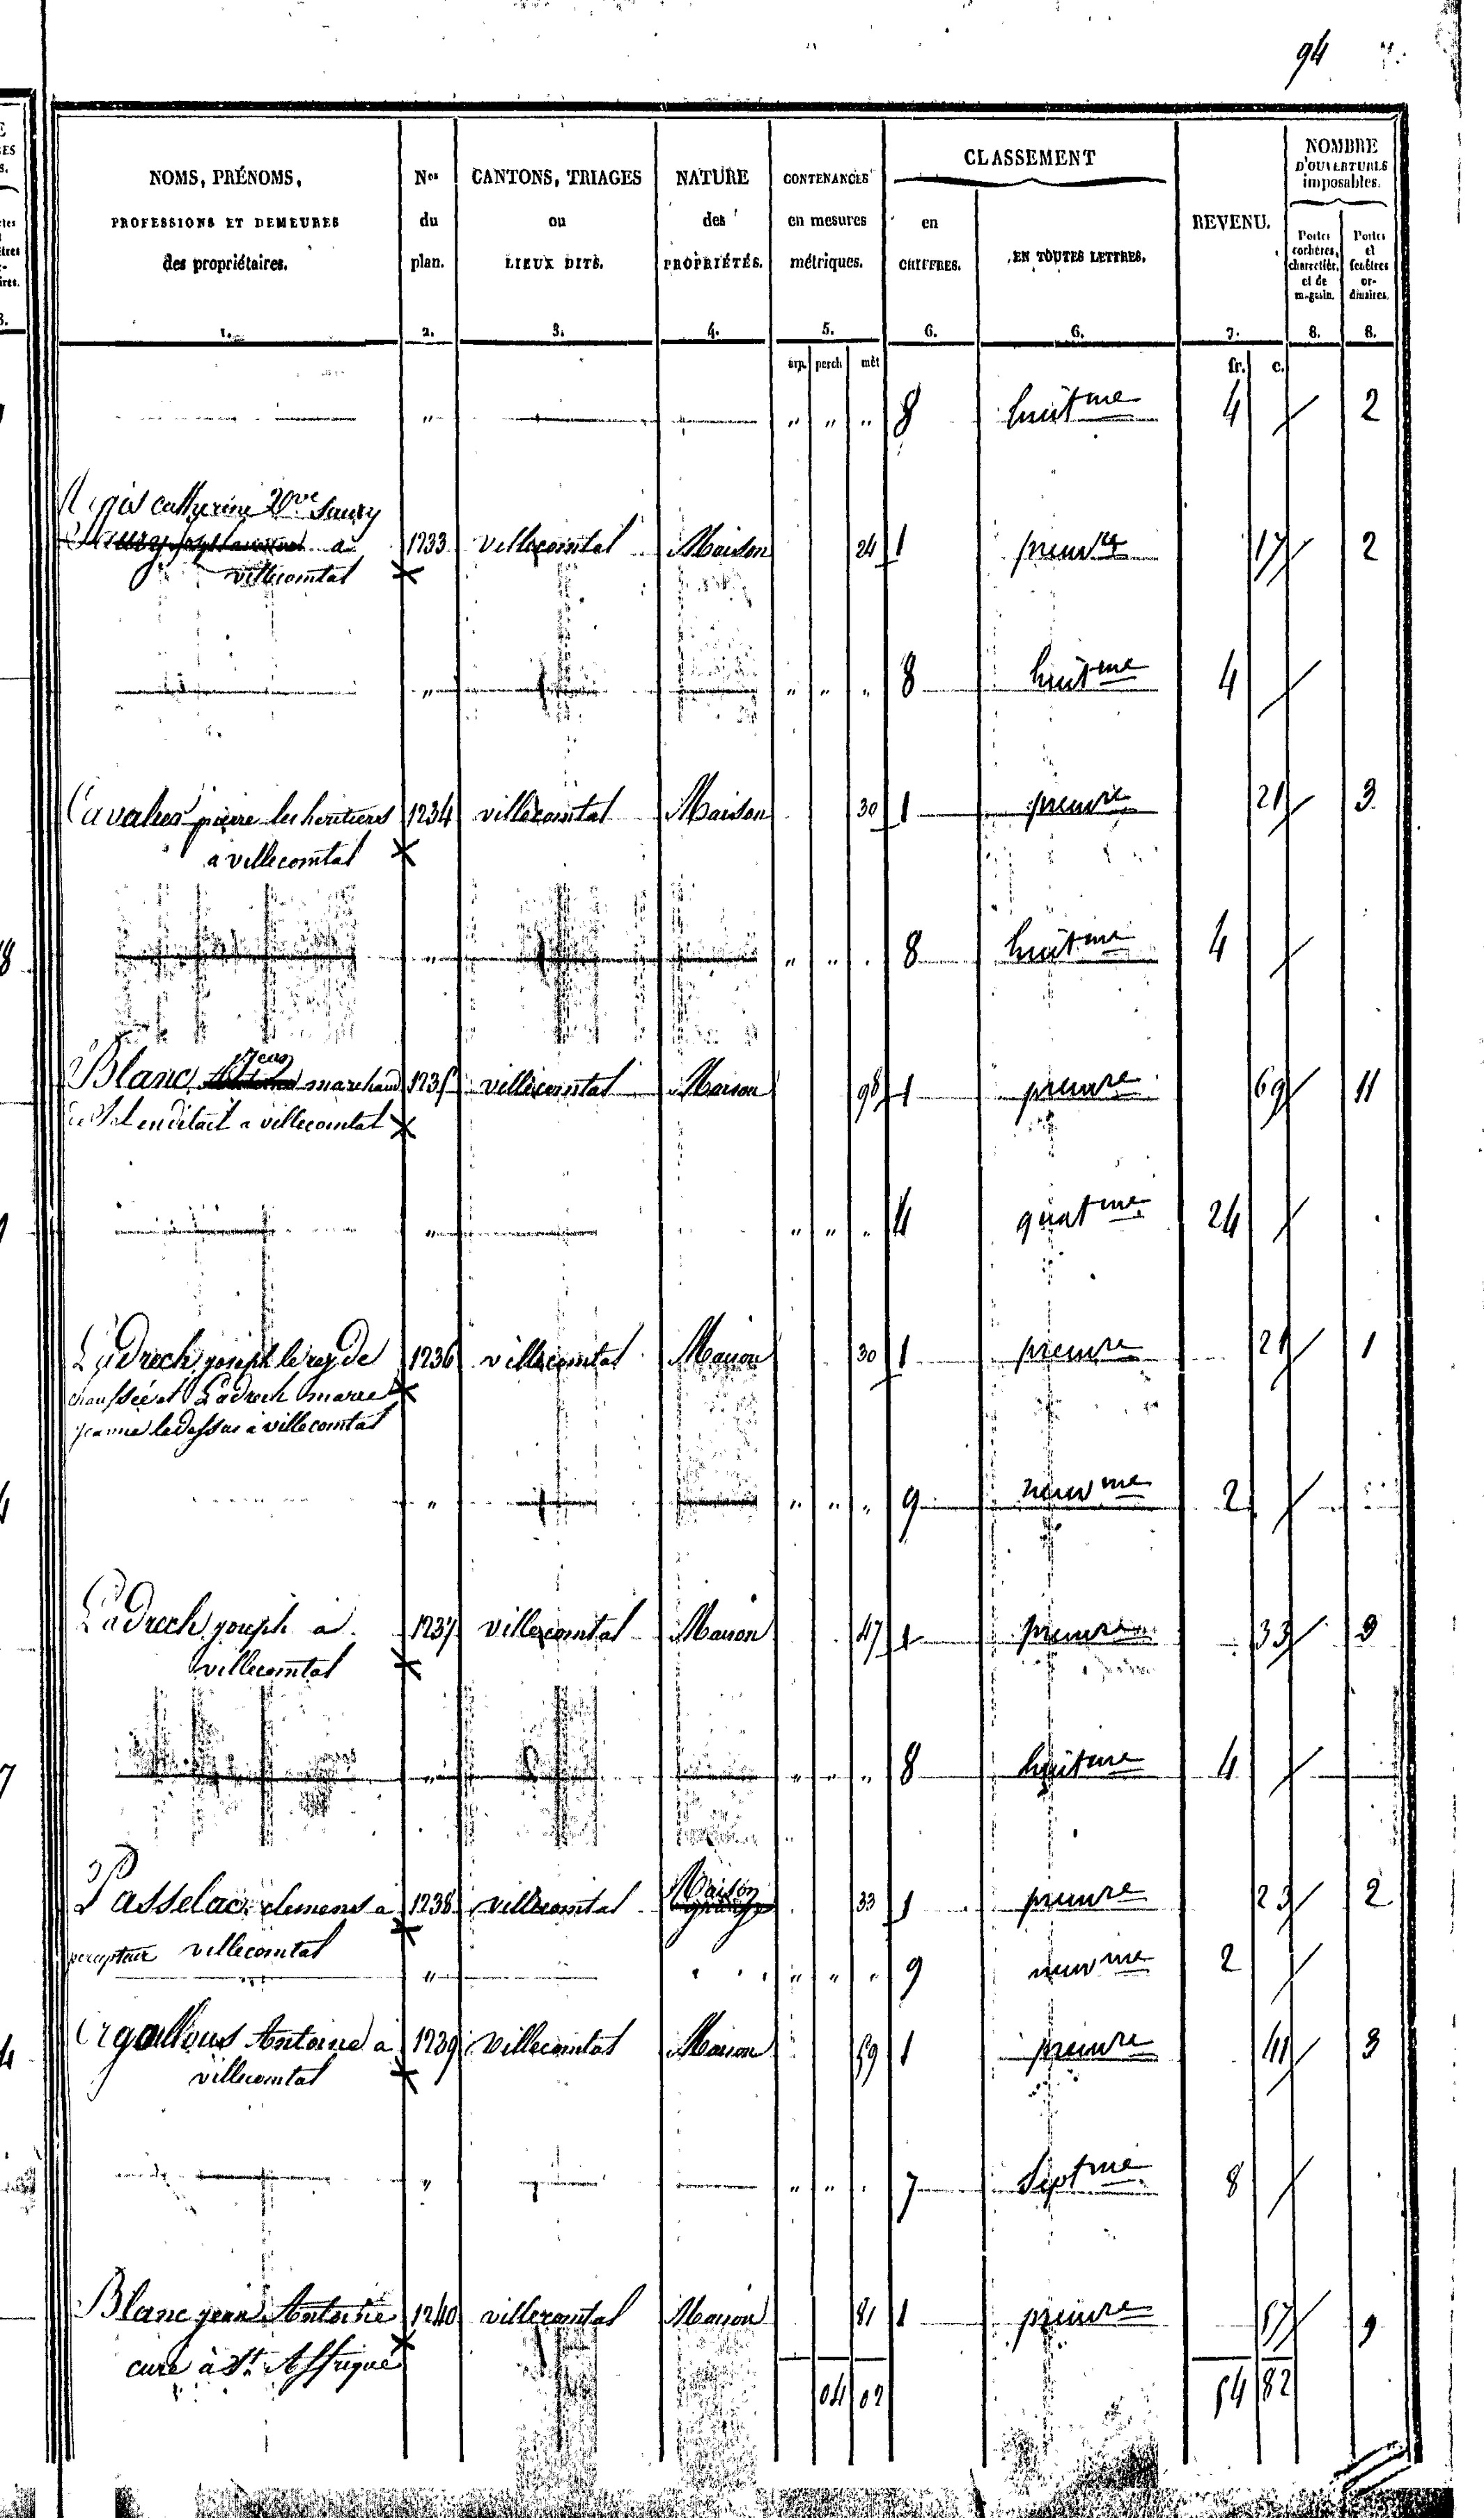 94
NOMS, PRÉNOMS, PROFESSIONS ET DEMEURES des propriétaires. 1.
Nos du plan. 2.
CANTONS, TRIAGES ou LIEUX DITS. 3.
NATURE des PROPRIÉTÉS. 4.
CONTENANCES en mesures métriques. 5.
CLASSEMENT
en CHIFFRES. 6.
EN TOUTES LETTRES. 6.
REVENU. 7.
NOMBRE D'OUVERTURES imposables.
Portes cochères, charretièr. et de magasin. 8.
Portes et fenêtres ordinaires. 8.
arp. perch mèt fr. c.
" " " " 8 huitme 4 / 2
catherine Vve Saury
à 1233 villecomtal Maison 24 1 premre 17 / 2
villecomtal
" " " " 8 huitme 4 /
pierre les heritiers 1234 villecomtal Maison 30 1 premre 21 / 3
a villecomtal
" " " . 8 huitme 4 /
Jean
Blanc marchand 1235 villecomtal Maison 98 1 premre 69 / 11
en détail a villecomtal
" " " " 4 quatme 24 /
Ladrech joseph le rey de 1236 villecomtal Maison 30 1 premre 21 / 1
chaussée et Ladrech marie
jeanne le dessus à villecomtal
" " " " 9 neuvme 2 /
Ladrech joseph à 1237 villecomtal Maison 47 1 premre 33 / 3
villecomtal
" " " " 8 huitme 4 /
Maison
Passelac clemens a 1238 villecomtal grange 33 1 premre 23 / 2
percepteur villecomtal
" " " " 9 neuvme 2 /
Antoine a 1239 Villecomtal Maison 59 1 premre 41 / 3
villecomtal
" " " . 7 Septme 8 /
Blanc jean Antoine 1240 villecomtal Maison 81 1 premre 57 / 9
curé à St. Affrique
04 02 54 82